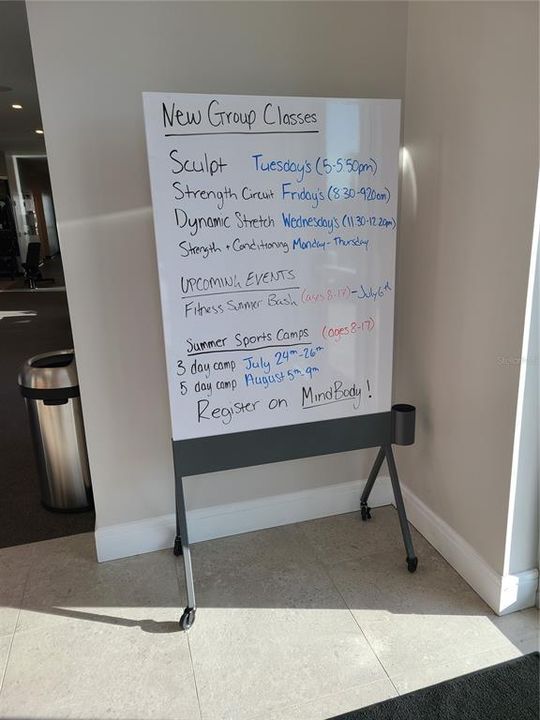 New Group Classes
Sculpt Tuesday's (5-5:50pm)
Strength Circuit Friday's (8:30-9:20am)
Dynamic Stretch Wednesday's (11:30-12:20pm)
Strength + Conditioning Monday - Thursday
UPCOMING EVENTS
Fitness Summer Bash (ages 8-17) - July 6th
Summer Sports Camps (ages 8-17)
3 day camp July 24th-26th
5 day camp August 5th-9th
Register on MindBody!
Stellar